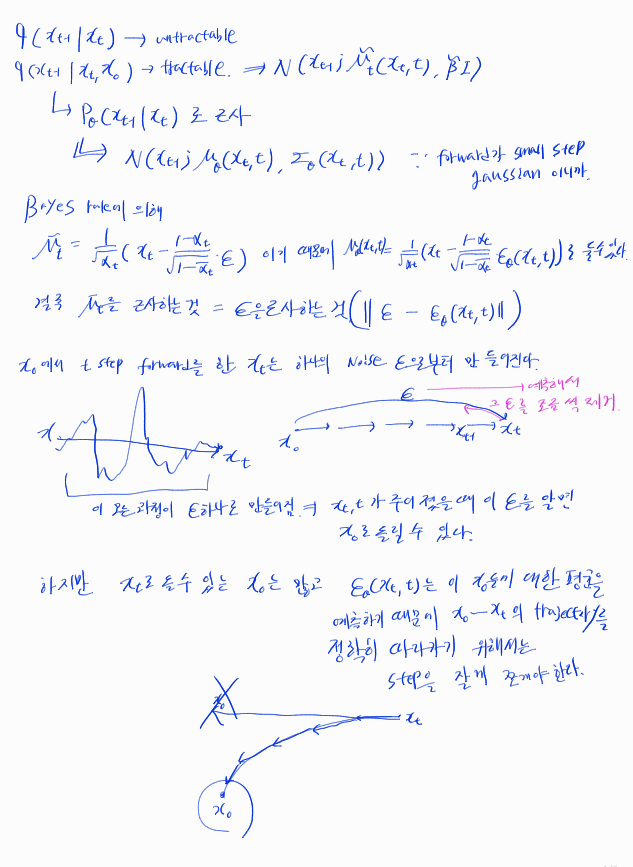 q(x_{t-1} | x_t) → untractable
q(x_{t-1} | x_t, x_0) → tractable. ⇒ N(x_{t-1}; μ̃_t(x_t, t), β̃I)
↳ P_θ(x_{t-1} | x_t) 로 근사
↳ N(x_{t-1}; μ_θ(x_t, t), Σ_θ(x_t, t)) ∵ forward가 small step
gaussian 이니까.
Bayes rule에 의해
μ̃_t = 1/√α_t (x_t - (1-α_t)/√(1-ᾱ_t) · ε) 이기 때문에 μ_θ(x_t, t) = 1/√α_t (x_t - (1-α_t)/√(1-ᾱ_t) ε_θ(x_t, t))로 둘수있다.
결국 μ̃_t를 근사하는것 = ε을근사하는것 (‖ε - ε_θ(x_t, t)‖)
x_0에서 t step forward를 한 x_t는 하나의 Noise ε으로부터 만들어진다.
ε → 예측해서
그 ε를 조금씩 제거.
x_0 x_t
x_0 → → → → x_{t-1} → x_t
이 모든 과정이 ε하나로 만들어짐 ⇒ x_t, t가 주어졌을때 이 ε를 알면
x_0로 돌릴 수 있다.
하지만 x_t로 올수 있는 x_0는 많고 ε_θ(x_t, t)는 이 x_0들에 대한 평균을
예측하기 때문에 x_0 — x_t 의 trajectory를
정확히 따라가기 위해서는
step을 잘게 쪼개야한다.
x_0
x_t
x_0